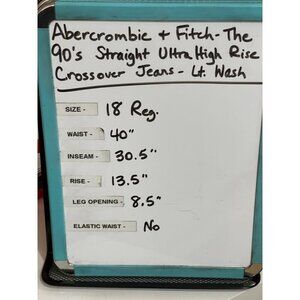 Abercrombie + Fitch - The
90's Straight Ultra High Rise
Crossover Jeans - Lt. Wash
SIZE - 18 Reg.
WAIST - 40"
INSEAM - 30.5"
RISE - 13.5"
LEG OPENING - 8.5"
ELASTIC WAIST - No